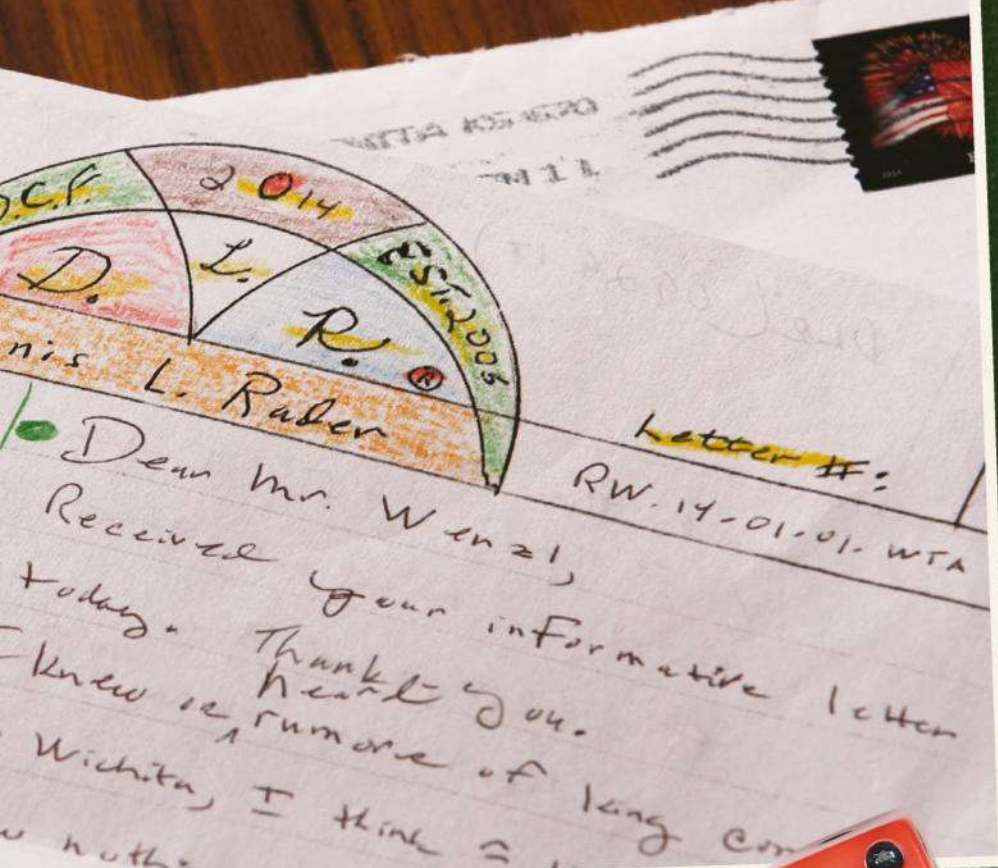 WITA KS 670
M 11
D.C.F. 2014 EST. 2005
D. L. R. ®
nis L. Rader
Letter #:
RW. 14-01-01. WTA
Dear Mr. Wenzl,
Received your informative letter
today. Thank you.
I knew or heard rumore of king
Wichita, I think